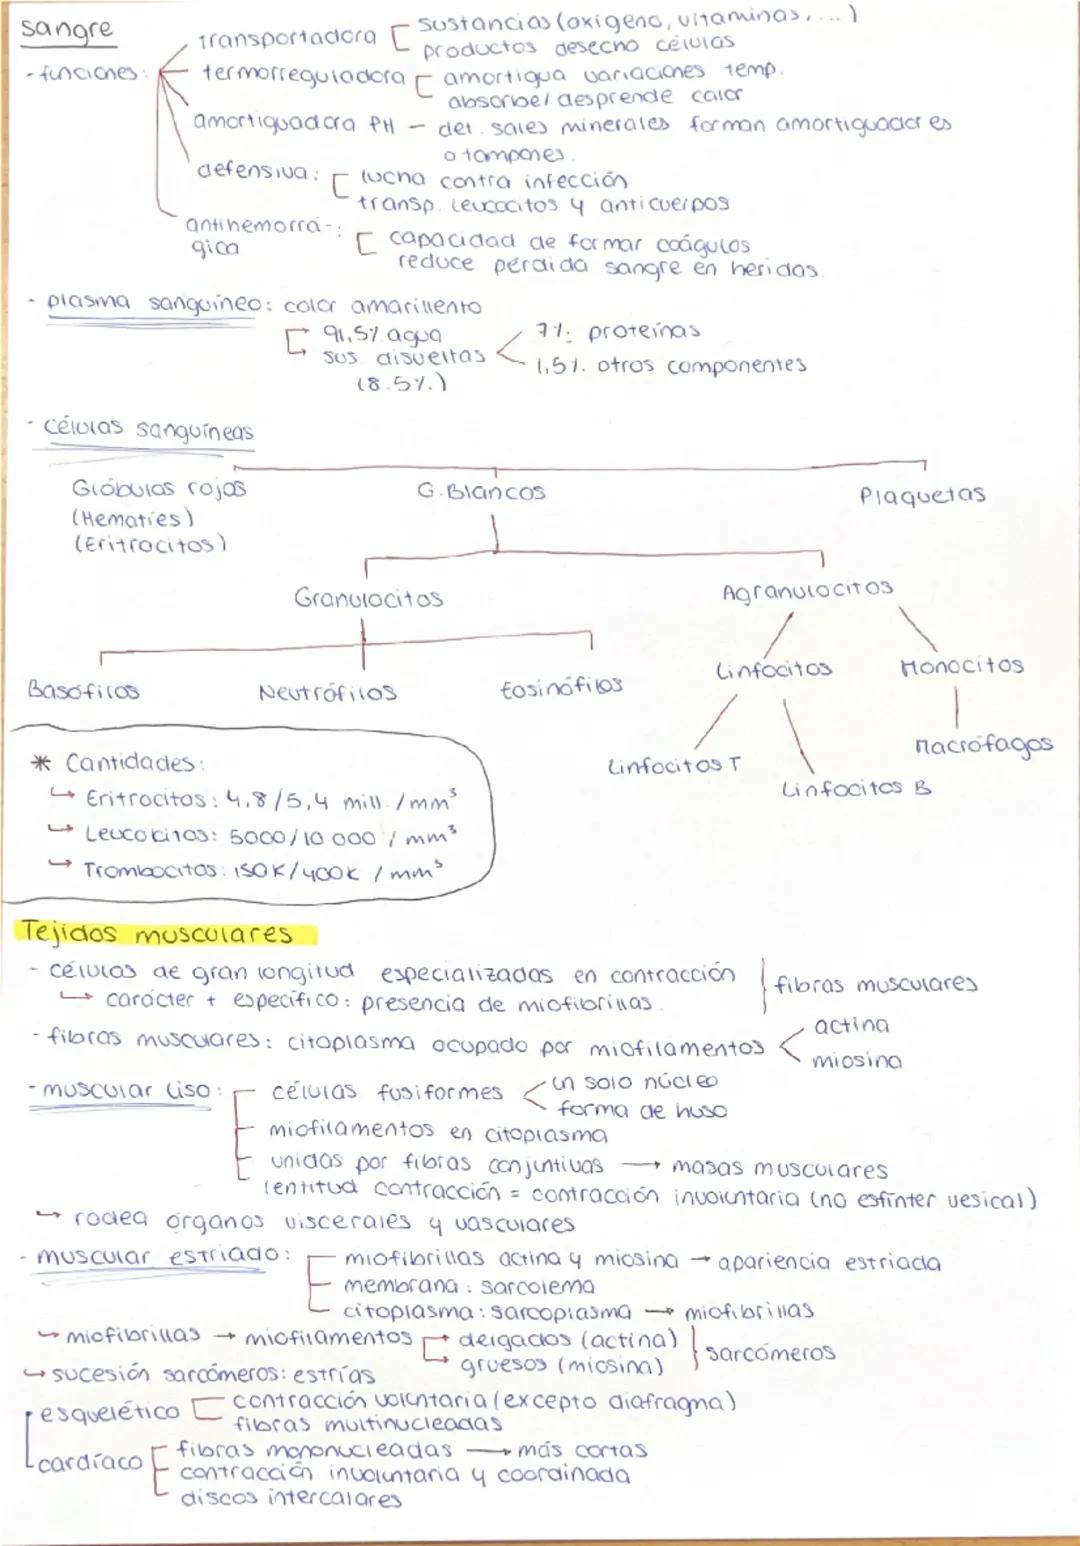 sangre
- funciones:
transportadora
sustancias (oxígeno, vitaminas, ...)
productos desecho células
termorreguladora
amortigua variaciones temp.
absorbe/desprende calor
amortiguadora PH - det. sales minerales forman amortiguadores
o tampones.
defensiva:
lucha contra infección
transp. leucocitos y anticuerpos
antihemorrá-:
gica
capacidad de formar coágulos
reduce pérdida sangre en heridas.
- plasma sanguíneo: color amarillento
91,5% agua
sus disueltas
(8.5%.)
7%. proteínas
1,5%. otros componentes
- células sanguíneas
Glóbulos rojos
(Hematíes)
(Eritrocitos)
G. Blancos
Plaquetas
Granulocitos
Agranulocitos
Basófilos
Neutrófilos
Eosinófilos
Linfocitos
Monocitos
Linfocitos T
Linfocitos B
Macrófagos
* Cantidades:
↳ Eritrocitos: 4,8/5,4 mill./mm³
↳ Leucocitos: 5000/10 000 / mm³
↳ Trombocitos: 150K/400K / mm³
Tejidos musculares
- células de gran longitud especializadas en contracción
↳ carácter + específico: presencia de miofibrillas.
fibras musculares
- fibras musculares: citoplasma ocupado por miofilamentos
actina
miosina
- muscular liso:
células fusiformes
un solo núcleo
forma de huso
miofilamentos en citoplasma
unidas por fibras conjuntivas → masas musculares
lentitud contracción = contracción involuntaria (no esfínter vesical)
↳ rodea órganos viscerales y vasculares
- muscular estriado:
miofibrillas actina y miosina → apariencia estriada
membrana: sarcolema
citoplasma: sarcoplasma → miofibrillas
↳ miofibrillas → miofilamentos
delgados (actina)
gruesos (miosina)
sarcómeros
↳ sucesión sarcómeros: estrías
esquelético
contracción voluntaria (excepto diafragma)
fibras multinucleadas
cardíaco
fibras mononucleadas → más cortas
contracción involuntaria y coordinada
discos intercalares